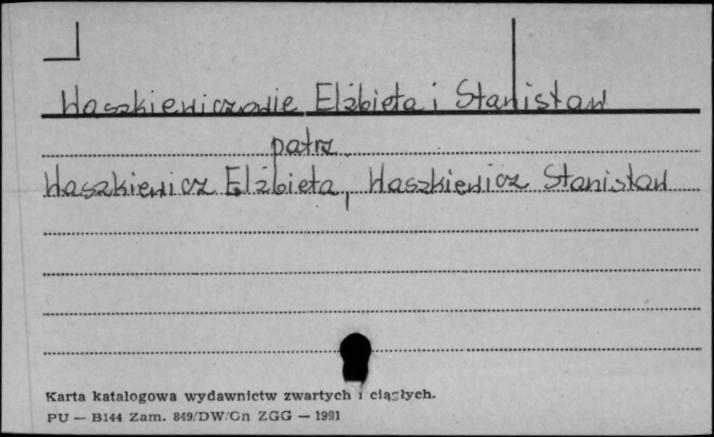 Waszkiewiczowie Elżbieta i Stanisław
patrz
Waszkiewicz Elżbieta, Waszkiewicz Stanisław
Karta katalogowa wydawnictw zwartych i ciągłych.
PU — B144 Zam. 849/DW/Gn ZGG — 1991